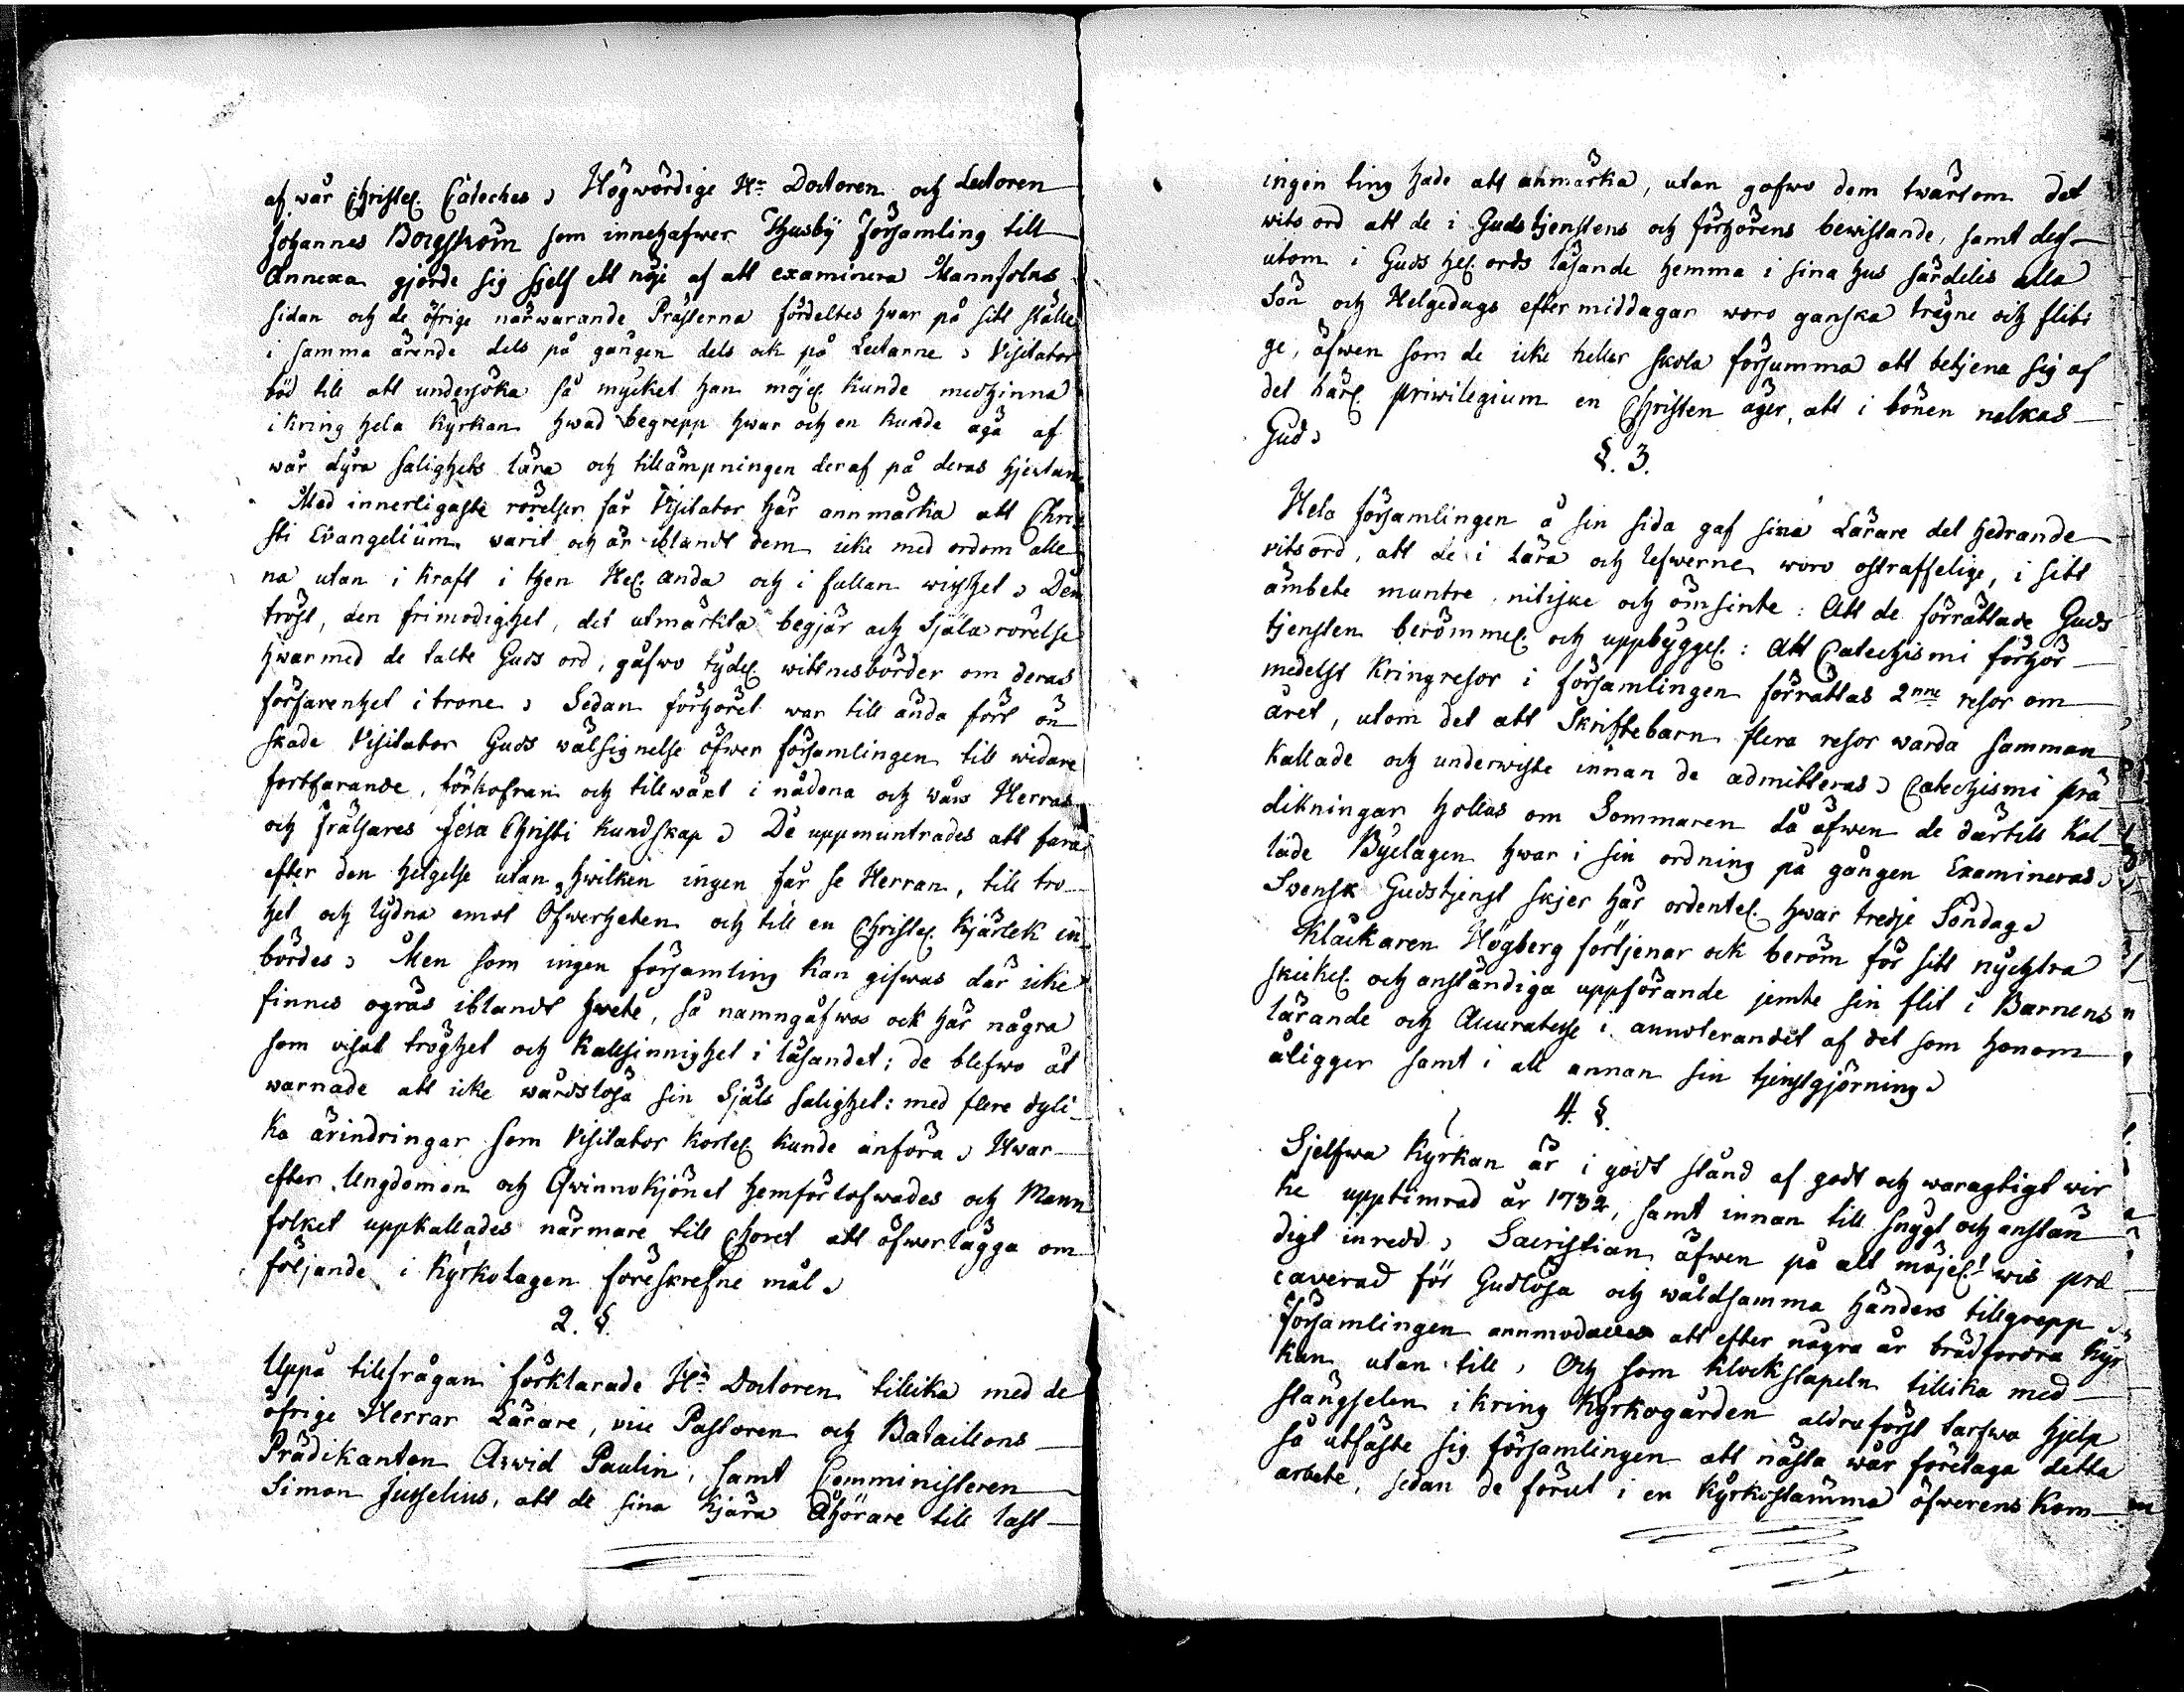 af wår Christel. Cateches, Högwördige Hr Doctoren och Lectoren
Johannes Borgström som innehafwer Thusby Församling till
Annexa gjorde sig sjelf ett nöje af att examinera Mannfolks
sidan och de öfrige närwarande Prästerna fördeltes hwar på sitt ställe
i samma ärende dels på gången dels ock på Lectarne, Visitator
böd till att undersöka så mycket han möjel. kunde medhinna
ikring hela Kyrkan hwad begrepp hwar och en kunde äga af
wår dyra salighets lära och tillämpningen deraf på deras hjertan
Med innerligaste rörelser får Visitator här annmärka att Chri
sti Evangelium warit och är iblandt dem icke med ordom alle
na utan i kraft i then Hel. Anda och i fullan wisshet, Den
tröst, den frimodighet, det utmärkta begjär och Själa rörelse
hwarmed de talte Guds ord, gåfwo tydel. wittnesbörder om deras
förfarenhet i trone, Sedan förhöret war till ända fört ön
skade Visitator Guds wälsignelse öfwer församlingen till widare
fortfarande, förkofran och tillwäxt i nådena och wårs Herras
och Frälsares Jesu Christi kundskap, De uppmuntrades att fara
efter den helgelse utan hwilken ingen får se Herran, till tro
het och lydna emot Öfwerheten och till en Christel. kjärlek in
bördes, Men som ingen församling kan gifwas där icke
finnes ogräs iblandt hwete, så namngåfwos ock här några
som visat tröghet och kallsinnighet i läsandet; de blefwo åt
warnade att icke wårdslösa sin Själs salighet: med flere dyli
ka ärindringar som Visitator kortel. kunde anföra, Hwar
efter Ungdomen och Qwinnokjönet hemförlofwades och Mann
folket uppkallades närmare till Choret att öfwerlägga om
följande i Kyrkolagen föreskrefne mål,
2. §.
Uppå tillfrågan förklarade Hr Doctoren tillika med de
öfrige Herrar Lärare, vice Pastoren och Bataillons
Prädikanten Arwid Paulin, samt Comministeren
Simon Jusselius, att de sina kjära Åhörare till last
ingen ting hade att anmärka, utan gofwo dem twärtom det
wits ord att de i Gudstjenstens och förhörens bewistande, samt dess
utom i Guds hel. ords läsande hemma i sina hus särdeles alla
Sön och Helgedags eftermiddagar woro ganska trägne och fliti
ge, äfwen som de icke heller skola försumma att betjena sig af
det härl. priwilegium en Christen äger, att i bönen nalkas
Gud,
§. 3.
Hela församlingen å sin sida gaf sina Lärare det hedrande
vitsord, att de i Lära och lefwerne woro ostraffelige, i sitt
ämbete muntre nitiske och ömsinte: Att de förrättade Guds
tjensten berömmel. och uppbyggel.: Att Catechismi förhör
medelst kringresor i församlingen förrättas 2nne resor om
året, utom det att Skriftebarn flera resor warda samman
kallade och underwiste innan de admitteras, Catechismi prä
dikningar hollas om Sommaren då äfwen de därtill kal
lade Byelagen hwar i sin ordning på gången Examineras,
Svensk Gudstjenst skjer här ordentel. hwar tredje Söndag,
Klåckaren Högberg förtjenar ock beröm för sitt nychtra
skickel. och anständiga uppförande jemte sin flit i Barnens
lärande och Accuratesse i annoterandet af det som honom
åligger samt i all annan sin tjenstgjörning,
4. §.
Sjelfwa Kyrkan är i godt stånd af godt och waragtigt wir
ke upptimrad år 1732, samt innan till snygt och anstän
digt inredd, Sacristian äfwen på alt möjel.t wis præ
caverad för Gudlösa och wåldsamma händers tillgrepp,
Församlingen annmodades att efter några år brädfordra Kyr
kan utan till, Och som klockstapeln tillika med
stängselen ikring Kyrkogården aldraförst tarfwa hjelp
så utfäste sig församlingen att nästa wår företaga detta
arbete, sedan de förut i en Kyrkostämma öfwerens kom